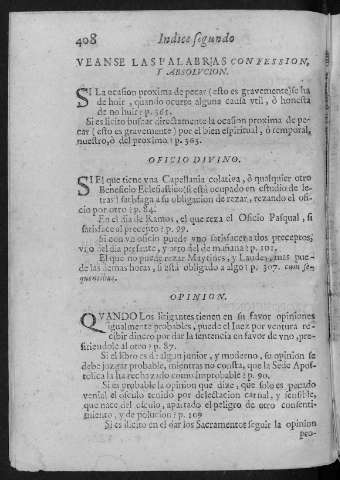 408 Indice segundo
VEANSE LAS PALABRAS CONFESSION,
Y ABSOLVCION.
SI La ocasion proxima de pecar (esto es gravemente) se ha
de huir, quando ocurre alguna causa vtil, ò honesta
de no huir? p. 363.
Si es licito buscar directamente la ocasion proxima de pe-
car (esto es gravemente) por el bien espiritual, ò temporal,
nuestro, ò del proximo? p. 363.
OFICIO DIVINO.
SI El que tiene vna Capellania colativa, ò qualquier otro
Beneficio Eclesiastico (si està ocupado en estudio de le-
tras) satisfaga à su obligacion de rezar, rezando el ofi-
cio por otro? p. 84.
En el dia de Ramos, el que reza el Oficio Pasqual, si
satisface al precepto? p. 99.
Si con vn oficio puede vno satisfacer a dos preceptos,
vno del dia presente, y otro del de mañana? p. 101.
El que no puede rezar Maytines, y Laudes, mas pue-
de las demas horas, si està obligado a algo? p. 307. cum se-
quentibus.
OPINION.
QVANDO Los litigantes tienen en su favor opiniones
igualmente probables, puede el Iuez por ventura re-
cibir dinero por dar la sentencia en favor de vno, pre-
firiendole al otro? p. 87.
Si el libro es de algun junior, y moderno, su opinion se
debe juzgar probable, mientras no consta, que la Sede Apos-
tolica la ha rechazado como improbable? p. 90.
Si es probable la opinion que dize, que solo es pecado
venial el osculo tenido por delectacion carnal, y sensible,
que nace del osculo, apartado el peligro de otro consenti-
miento, y de polucion? p. 109
Si es ilicito en el dar los Sacramentos seguir la opinion
pro-